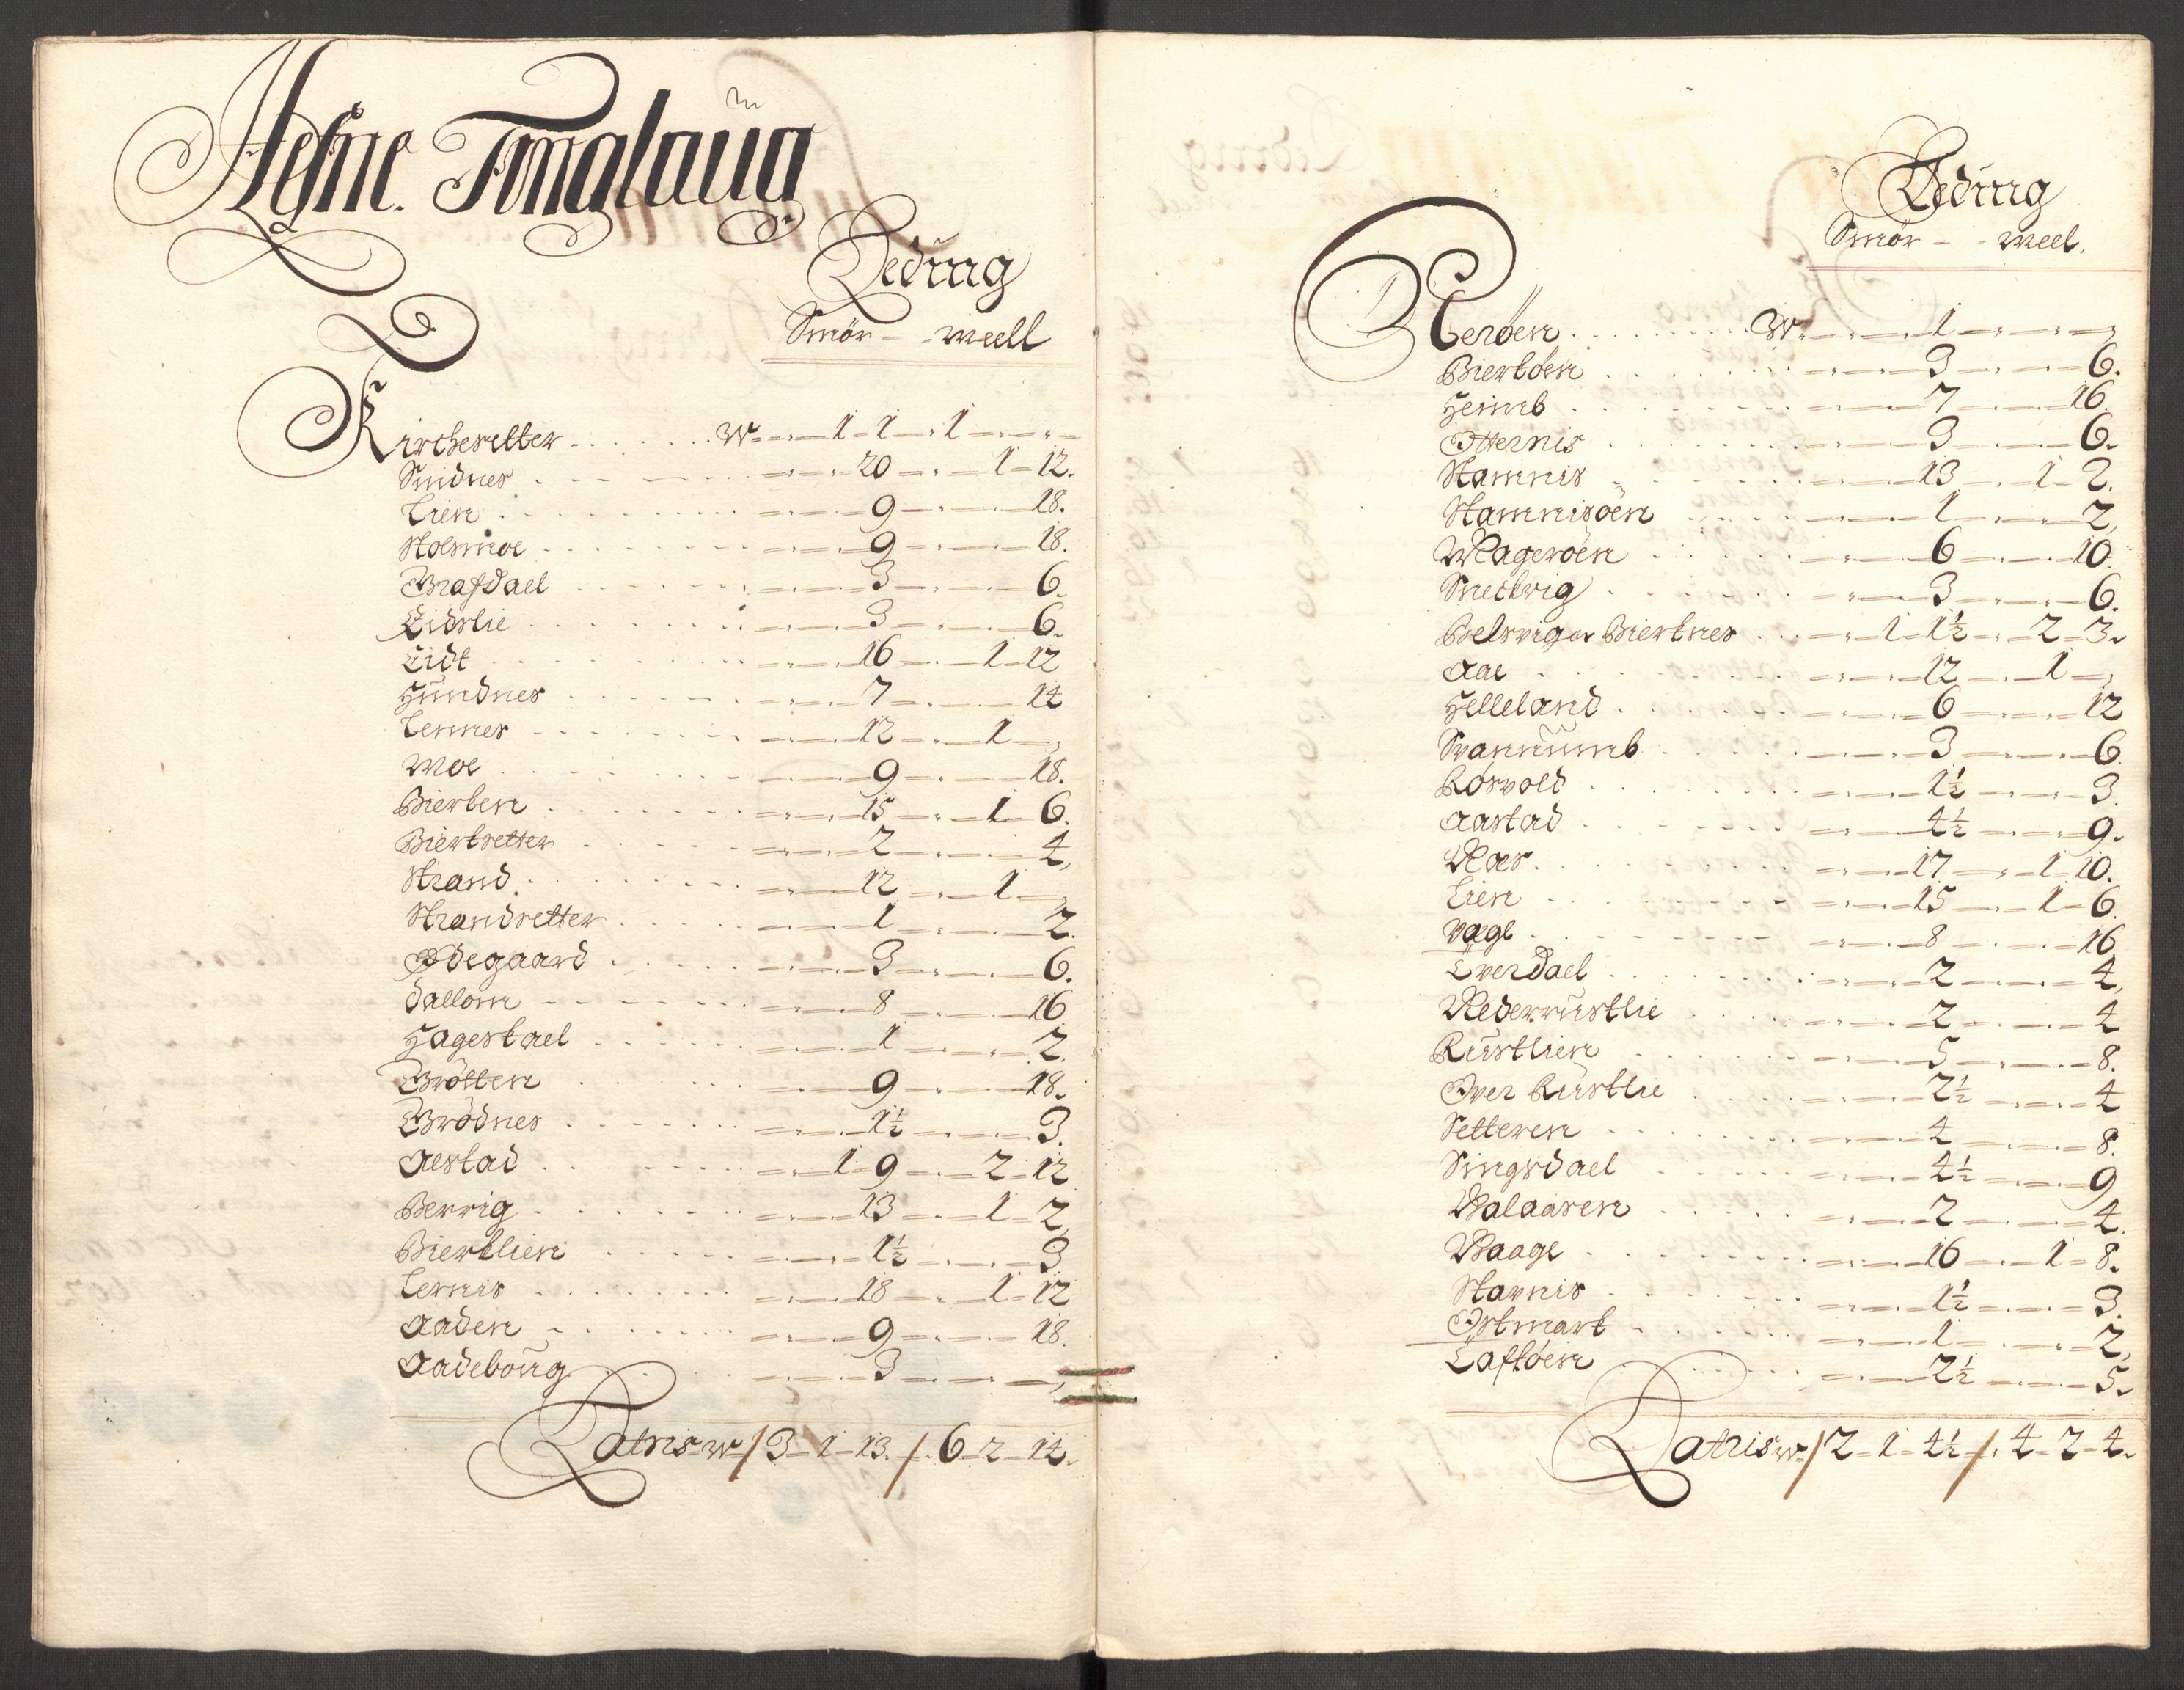 Hefne Tinglaug
Leding
Smör - - Meell
Kircheseter . . . . . . W - - - 1 - 1 - - 1 - - - -
Snidnes . - - - - 20 - - 1 - 12.
Lien . - - - 9 - - - 18.
Stolsmoe . - - - 9 - - - 18.
Grafdael . - - - 3 - - - 6.
Eidslie . - - - 3 - - - 6.
Eidt . - - - 16 - - 1 - 12
Hundnes . - - - 7 - - - 14
Lennes . - - - 12 - - 1 - ,
Moe . - - - 9 - - - 18.
Bierken . - - - 15 - - 1 - 6.
Bierksetter . - - - 2 - - - 4,
Strand . - - - 12 - - 1 - ,
Strandsetter . - - - 1 - - - 2.
Ödegaard . - - - 3 - - - 6.
Dallom - - - 8 - - - 16
Hagestael . - - - 1 - - - 2.
Grötten . - - - 9 - - - 18.
Grödnes . - - - 1½ - - - 3.
Aestad . - - - 1 - 9 - - 2 - 12
Bervig . - - - 13 - - 1 - 2,
Bierklien . - - - 1½ - - - 3
Lernis . - - - 18 - - 1 - 12
Aaden . - - - 9 - - - 18.
Aadeboug . - - - 3 - - - ,
Latris W / 3 - 1 - 13. / - 6 - 2 - 14.
Leding
Smör - - Meel.
Teröen . . . . . W. - - - 1 - - - ,
Bierköen . - - - 3 - - - 6.
Heimb . - - - 7 - - - 16.
Otternis . - - - 3 - - - 6.
Stamnis . - - - 13 - - 1 - 2.
Stamnisöen . - - - 1 - - - 2,
Mageröen . - - - 6 - - - 10.
Snetvig . - - - 3 - - - 6.
Belsvig oc Bierknes . - - 1 - 1½ - - 2 - 3.
Aae . - - - 12 - - 1 - ,
Helleland . - - - 6 - - - 12
Svanumb . - - - 3 - - - 6.
Rösvold . - - - 1½ - - - 3.
Aastad . - - - 4½ - - - 9.
Næs . - - - 17 - - 1 - 10.
Lien . - - - 15 - - 1 - 6.
Vagl . - - - 8 - - - 16
Everdael . - - - 2 - - - 4,
Nederrustlie . - - - 2 - - - 4
Rustlien . - - - 5 - - - 8.
Over Rustlie . - - - 2½ - - - 4
Setteren . - - - 4 - - - 8.
Singsdael . - - - 4½ - - - 9
Balaasen . - - - 2 - - - 4.
Waage . - - - 16 - - 1 - 8.
Stavnis . - - - 1½ - - - 3.
Ostmark . - - - 1 - - - 2,
Laksöen . - - - 2½ - - - 5.
Latris W / 2 - 1 - 4½ / . 4 - 2 - 4.